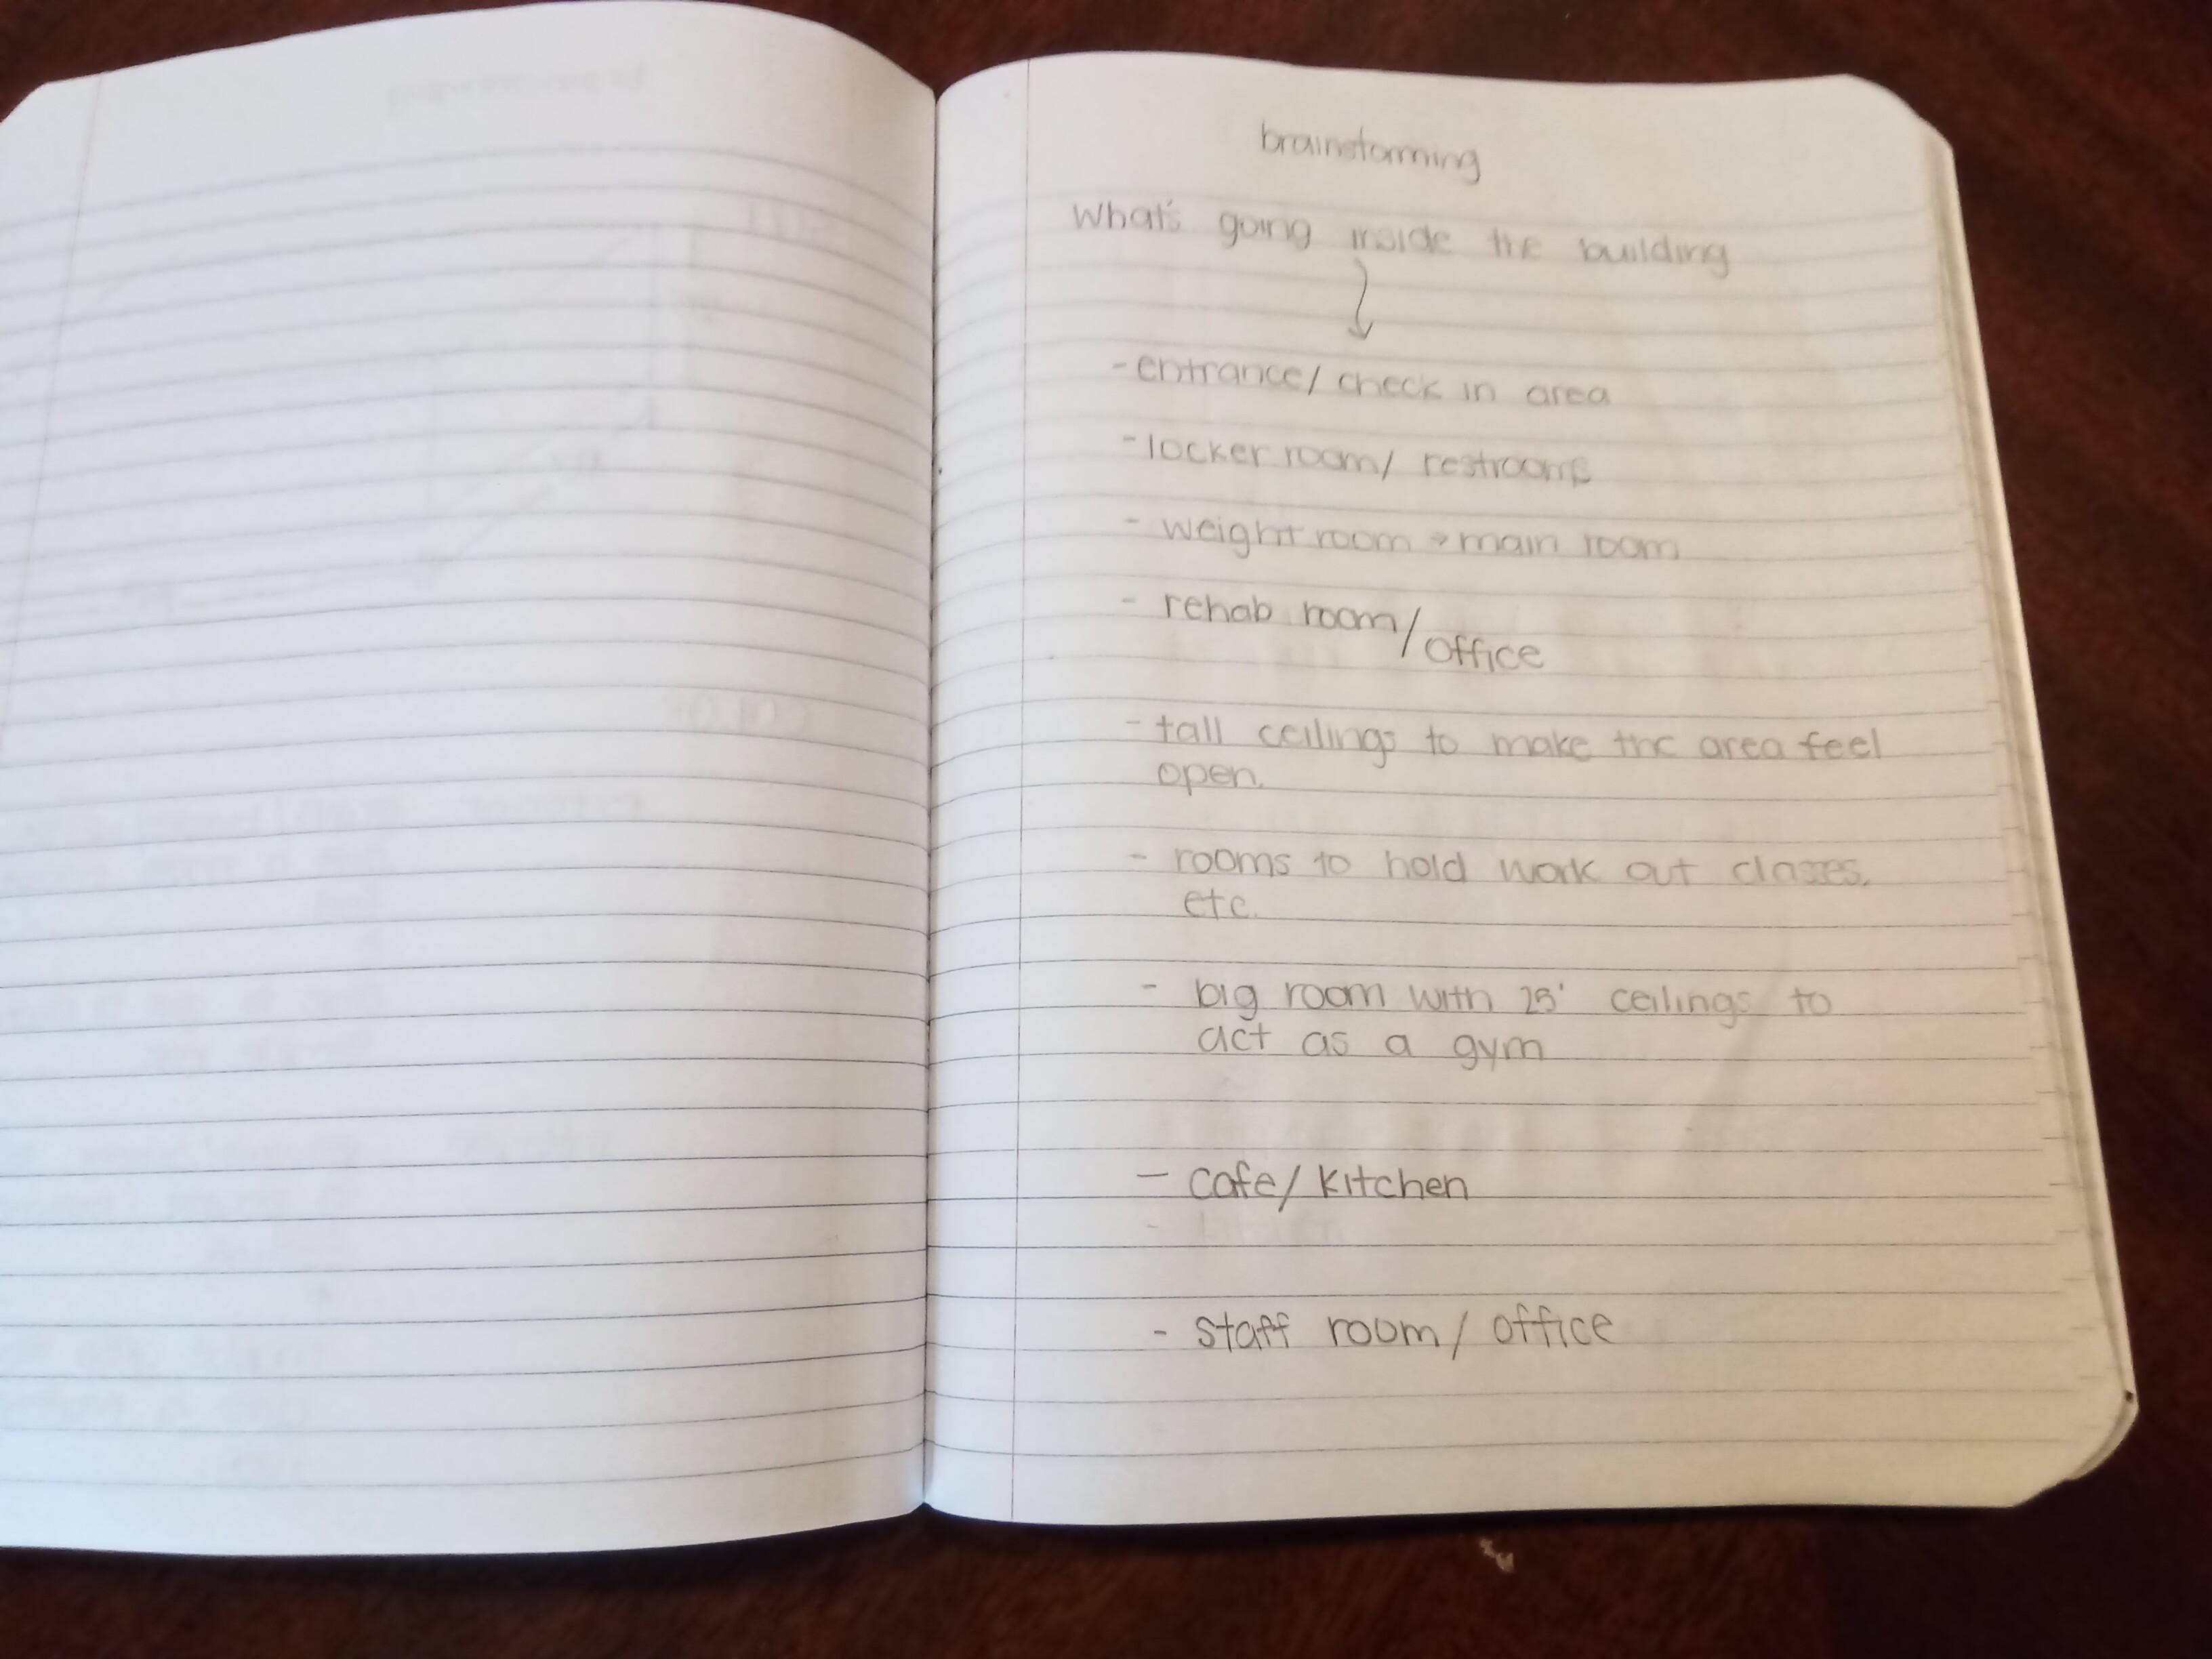 brainstorming
What's going inside the building
- entrance/ check in area
- locker room/ restrooms
- weight room → main room
- rehab room/
office
- tall ceilings to make the area feel
open.
- rooms to hold work out classes,
etc.
- big room with 25' ceilings to
act as a gym
- cafe/ kitchen
- staff room/ office